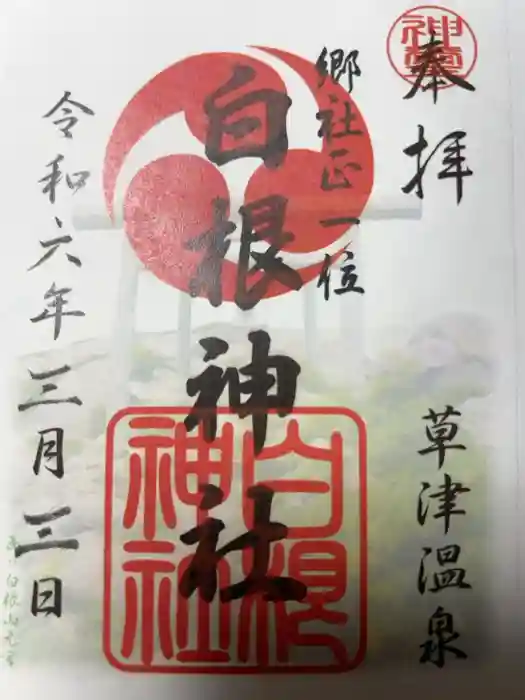 奉拝
草津温泉
郷社正一位
白根神社
令和六年三月三日
白根
神社